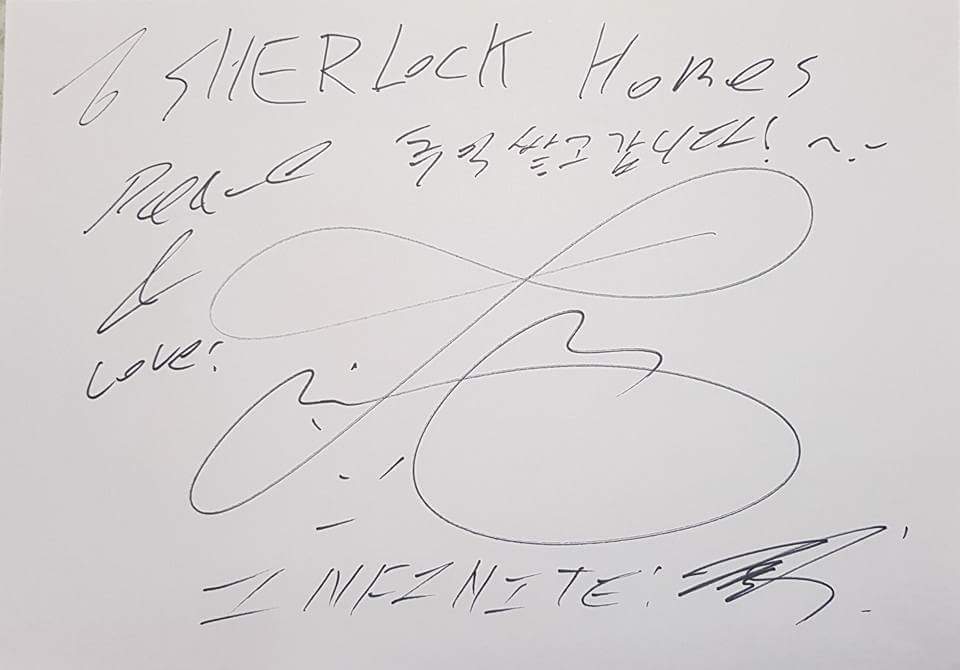 To SHERLocK HoMes
Peace 추억 쌓고 갑니다! ~.~
&
Love!
INFINITE!